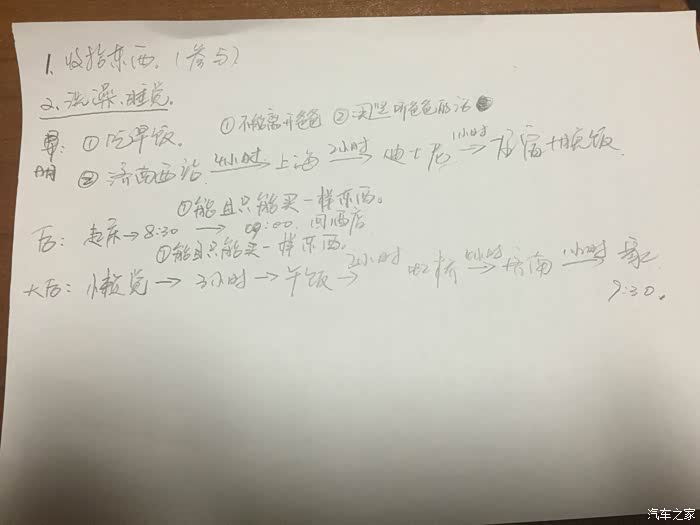 1、收拾东西.(参与)
2、洗澡、睡觉.
①不能离开爸爸 ②听爸爸的话
明: ①吃早饭.
②济南西站 4小时→ 上海 2小时→ 迪士尼 1小时→ 住宿+晚饭
①能且只能买一样东西。
后: 起床→8:30 → 09:00 回酒店
①能且只能买一样东西.
大后: 懒觉 → 3小时 → 午饭 2小时→ 虹桥 4小时→ 济南 1小时→ 家
9:30.
汽车之家